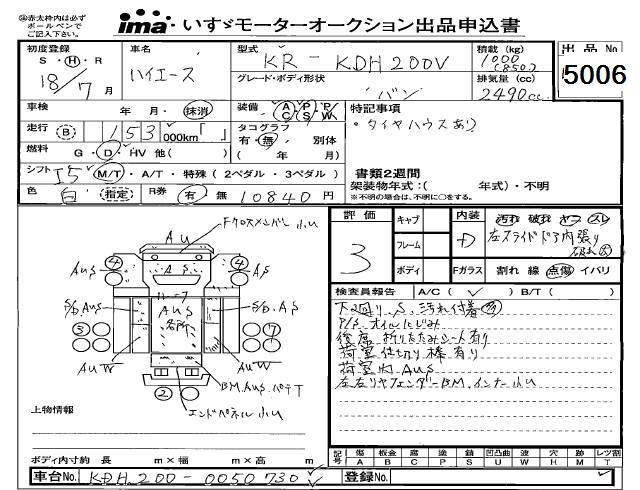 ㊟赤太枠内は必ず
ボールペンで
ご記入下さい。
ima いすゞモーターオークション出品申込書
初度登録
S・H・R
18/7 月
車名
ハイエース
型式
KR-KDH200V
グレード・ボディ形状
バン
積載 (kg)
1000
(850)
排気量 (cc)
2490cc
出品No
5006
車検 年 月・抹消
装備 A/C P/S P/W
特記事項
・タイヤハウスあり
走行 (B) 153 000km「 」
タコグラフ
有・無 別体
( 年 月)
燃料 G・D・HV 他( )
書類2週間
シフト I5 M/T・A/T・特殊(2ペダル・3ペダル)
架装物年式:( 年式)・不明
※不明の場合は、不明に○をする。
色 白 (指定) R券 有・無 10840円
評価
3
キャブ
フレーム
ボディ
内装
D
汚れ 破れ ヤコ スレ
左スライドドア内張り
破れ大
Fガラス 割れ 線 点傷 イバリ
検査員報告 A/C(✓) B/T( )
下回り S、汚れ付着多
P/S オイルにじみ
後席 折りたたみシート有り
荷室 仕切り棒有り
荷室内 AUS
左右リヤフェンダーBM、インナー小U
Fクロスメンバー小U
AU
④ ④
AUS AS AS
ルーフ
AUS
多所
S/D.AUS S/D.AS
③ ⑦
AUW AUW
BM.AUS パテT
②
エンドパネル小U
上物情報
ボディ内寸約 長 m×幅 m×高 m
記号 傷 板金 腐 塗 錆 凹凸曲 波 穴 跡 レツ割
A B C P S U W H M T
車台No. KDH200-0050730
登録No.